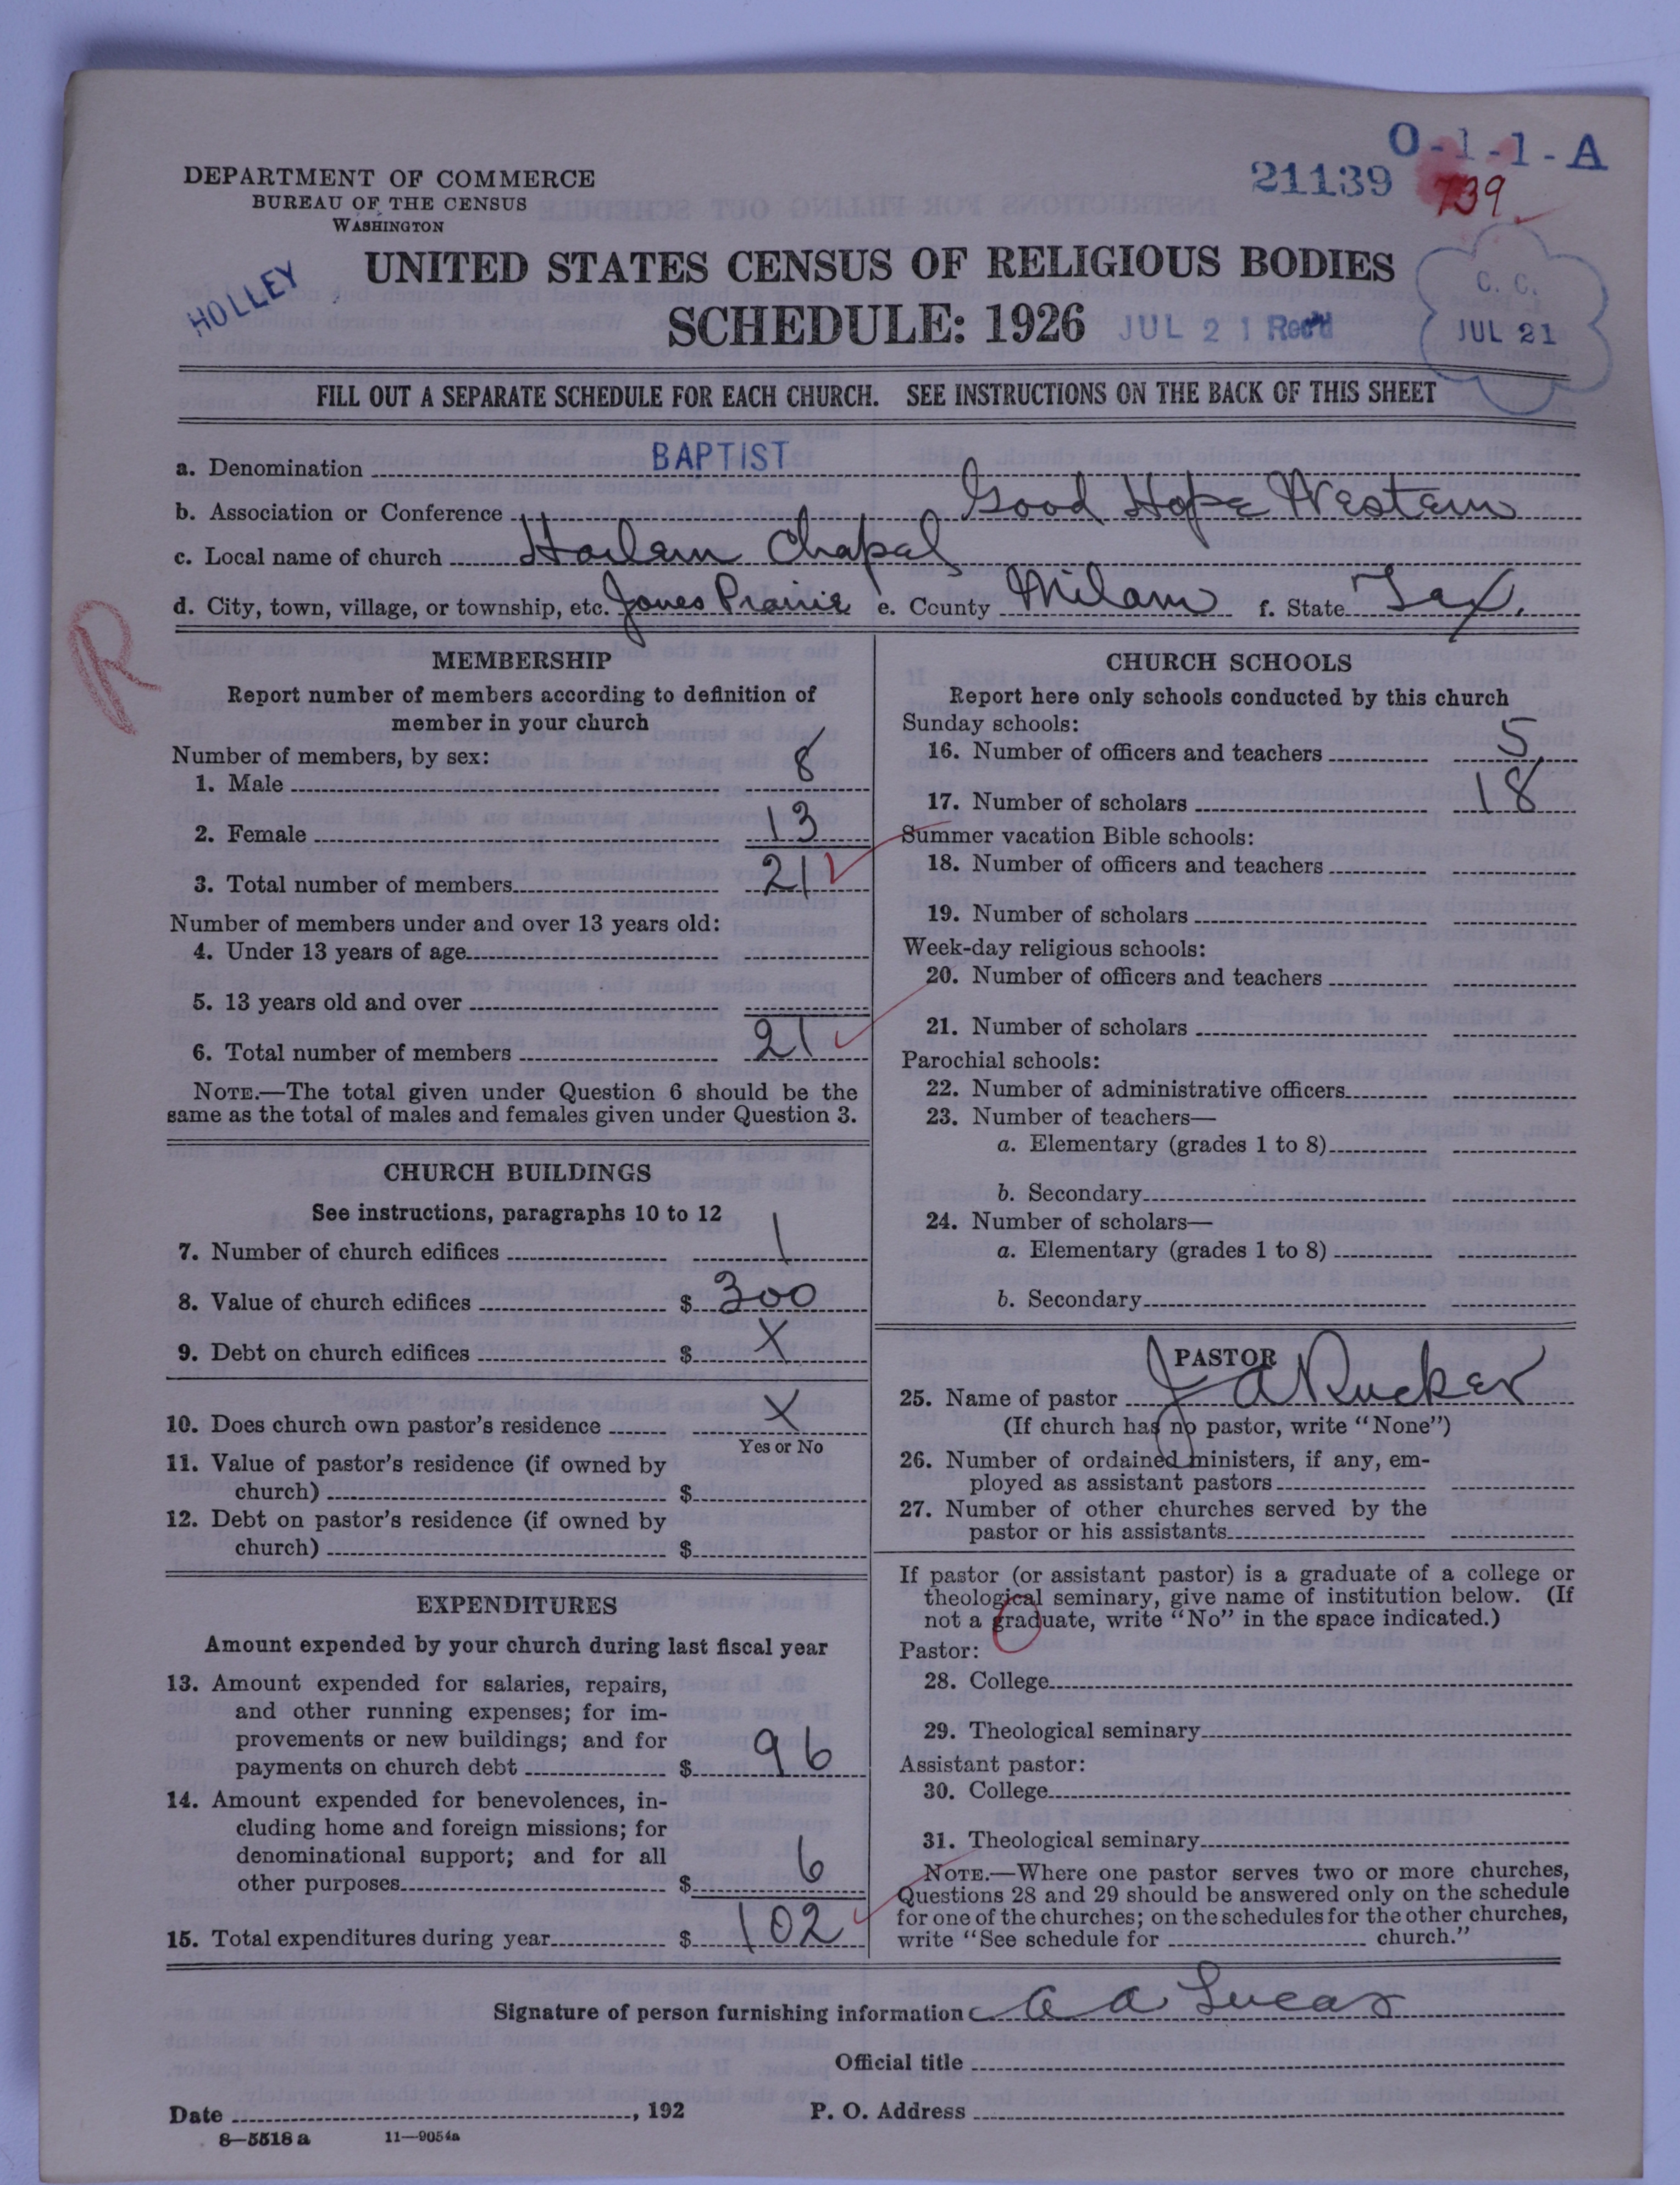 O-1-1-A
21139
739
DEPARTMENT OF COMMERCE
BUREAU OF THE CENSUS
WASHINGTON
HOLLEY
UNITED STATES CENSUS OF RELIGIOUS BODIES
SCHEDULE: 1926
JUL 21 Rec'd
C. C.
JUL 21
FILL OUT A SEPARATE SCHEDULE FOR EACH CHURCH. SEE INSTRUCTIONS ON THE BACK OF THIS SHEET
a. Denomination BAPTIST
b. Association or Conference Good Hope Western
c. Local name of church Harlem Chapel
d. City, town, village, or township, etc. Jones Prairie e. County Milam f. State Tex.
R
MEMBERSHIP
Report number of members according to definition of
member in your church
Number of members, by sex:
1. Male 8
2. Female 13
3. Total number of members 21
Number of members under and over 13 years old:
4. Under 13 years of age
5. 13 years old and over
6. Total number of members 21
NOTE.—The total given under Question 6 should be the
same as the total of males and females given under Question 3.
CHURCH BUILDINGS
See instructions, paragraphs 10 to 12
7. Number of church edifices 1
8. Value of church edifices $ 300
9. Debt on church edifices $ X
10. Does church own pastor's residence X
Yes or No
11. Value of pastor's residence (if owned by
church) $
12. Debt on pastor's residence (if owned by
church) $
EXPENDITURES
Amount expended by your church during last fiscal year
13. Amount expended for salaries, repairs,
and other running expenses; for im-
provements or new buildings; and for
payments on church debt $ 96
14. Amount expended for benevolences, in-
cluding home and foreign missions; for
denominational support; and for all
other purposes $ 6
15. Total expenditures during year $ 102
CHURCH SCHOOLS
Report here only schools conducted by this church
Sunday schools:
16. Number of officers and teachers 5
17. Number of scholars 18
Summer vacation Bible schools:
18. Number of officers and teachers
19. Number of scholars
Week-day religious schools:
20. Number of officers and teachers
21. Number of scholars
Parochial schools:
22. Number of administrative officers
23. Number of teachers—
a. Elementary (grades 1 to 8)
b. Secondary
24. Number of scholars—
a. Elementary (grades 1 to 8)
b. Secondary
PASTOR
25. Name of pastor J A Rucker
(If church has no pastor, write "None")
26. Number of ordained ministers, if any, em-
ployed as assistant pastors
27. Number of other churches served by the
pastor or his assistants
If pastor (or assistant pastor) is a graduate of a college or
theological seminary, give name of institution below. (If
not a graduate, write "No" in the space indicated.)
Pastor:
28. College
29. Theological seminary
Assistant pastor:
30. College
31. Theological seminary
NOTE.—Where one pastor serves two or more churches,
Questions 28 and 29 should be answered only on the schedule
for one of the churches; on the schedules for the other churches,
write "See schedule for church."
Signature of person furnishing information A A Lucas
Official title
Date , 192 P. O. Address
8—5518 a 11—9054a